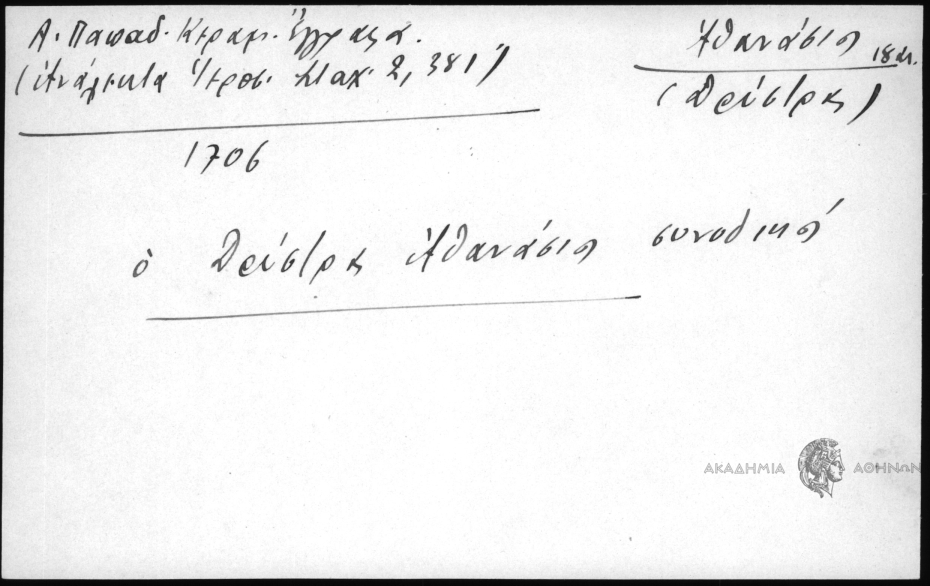 Α. Παπαδ. Κεραμ. Ἔγγραφα.
(Ἀνάλεκτα Ἱεροσ. Σταχ. 2, 381)
Ἀθανάσιος 18 αι.
(Δρύστρας)
1706
ὁ Δρύστρας Ἀθανάσιος συνοδικός
ΑΚΑΔΗΜΙΑ ΑΘΗΝΩΝ